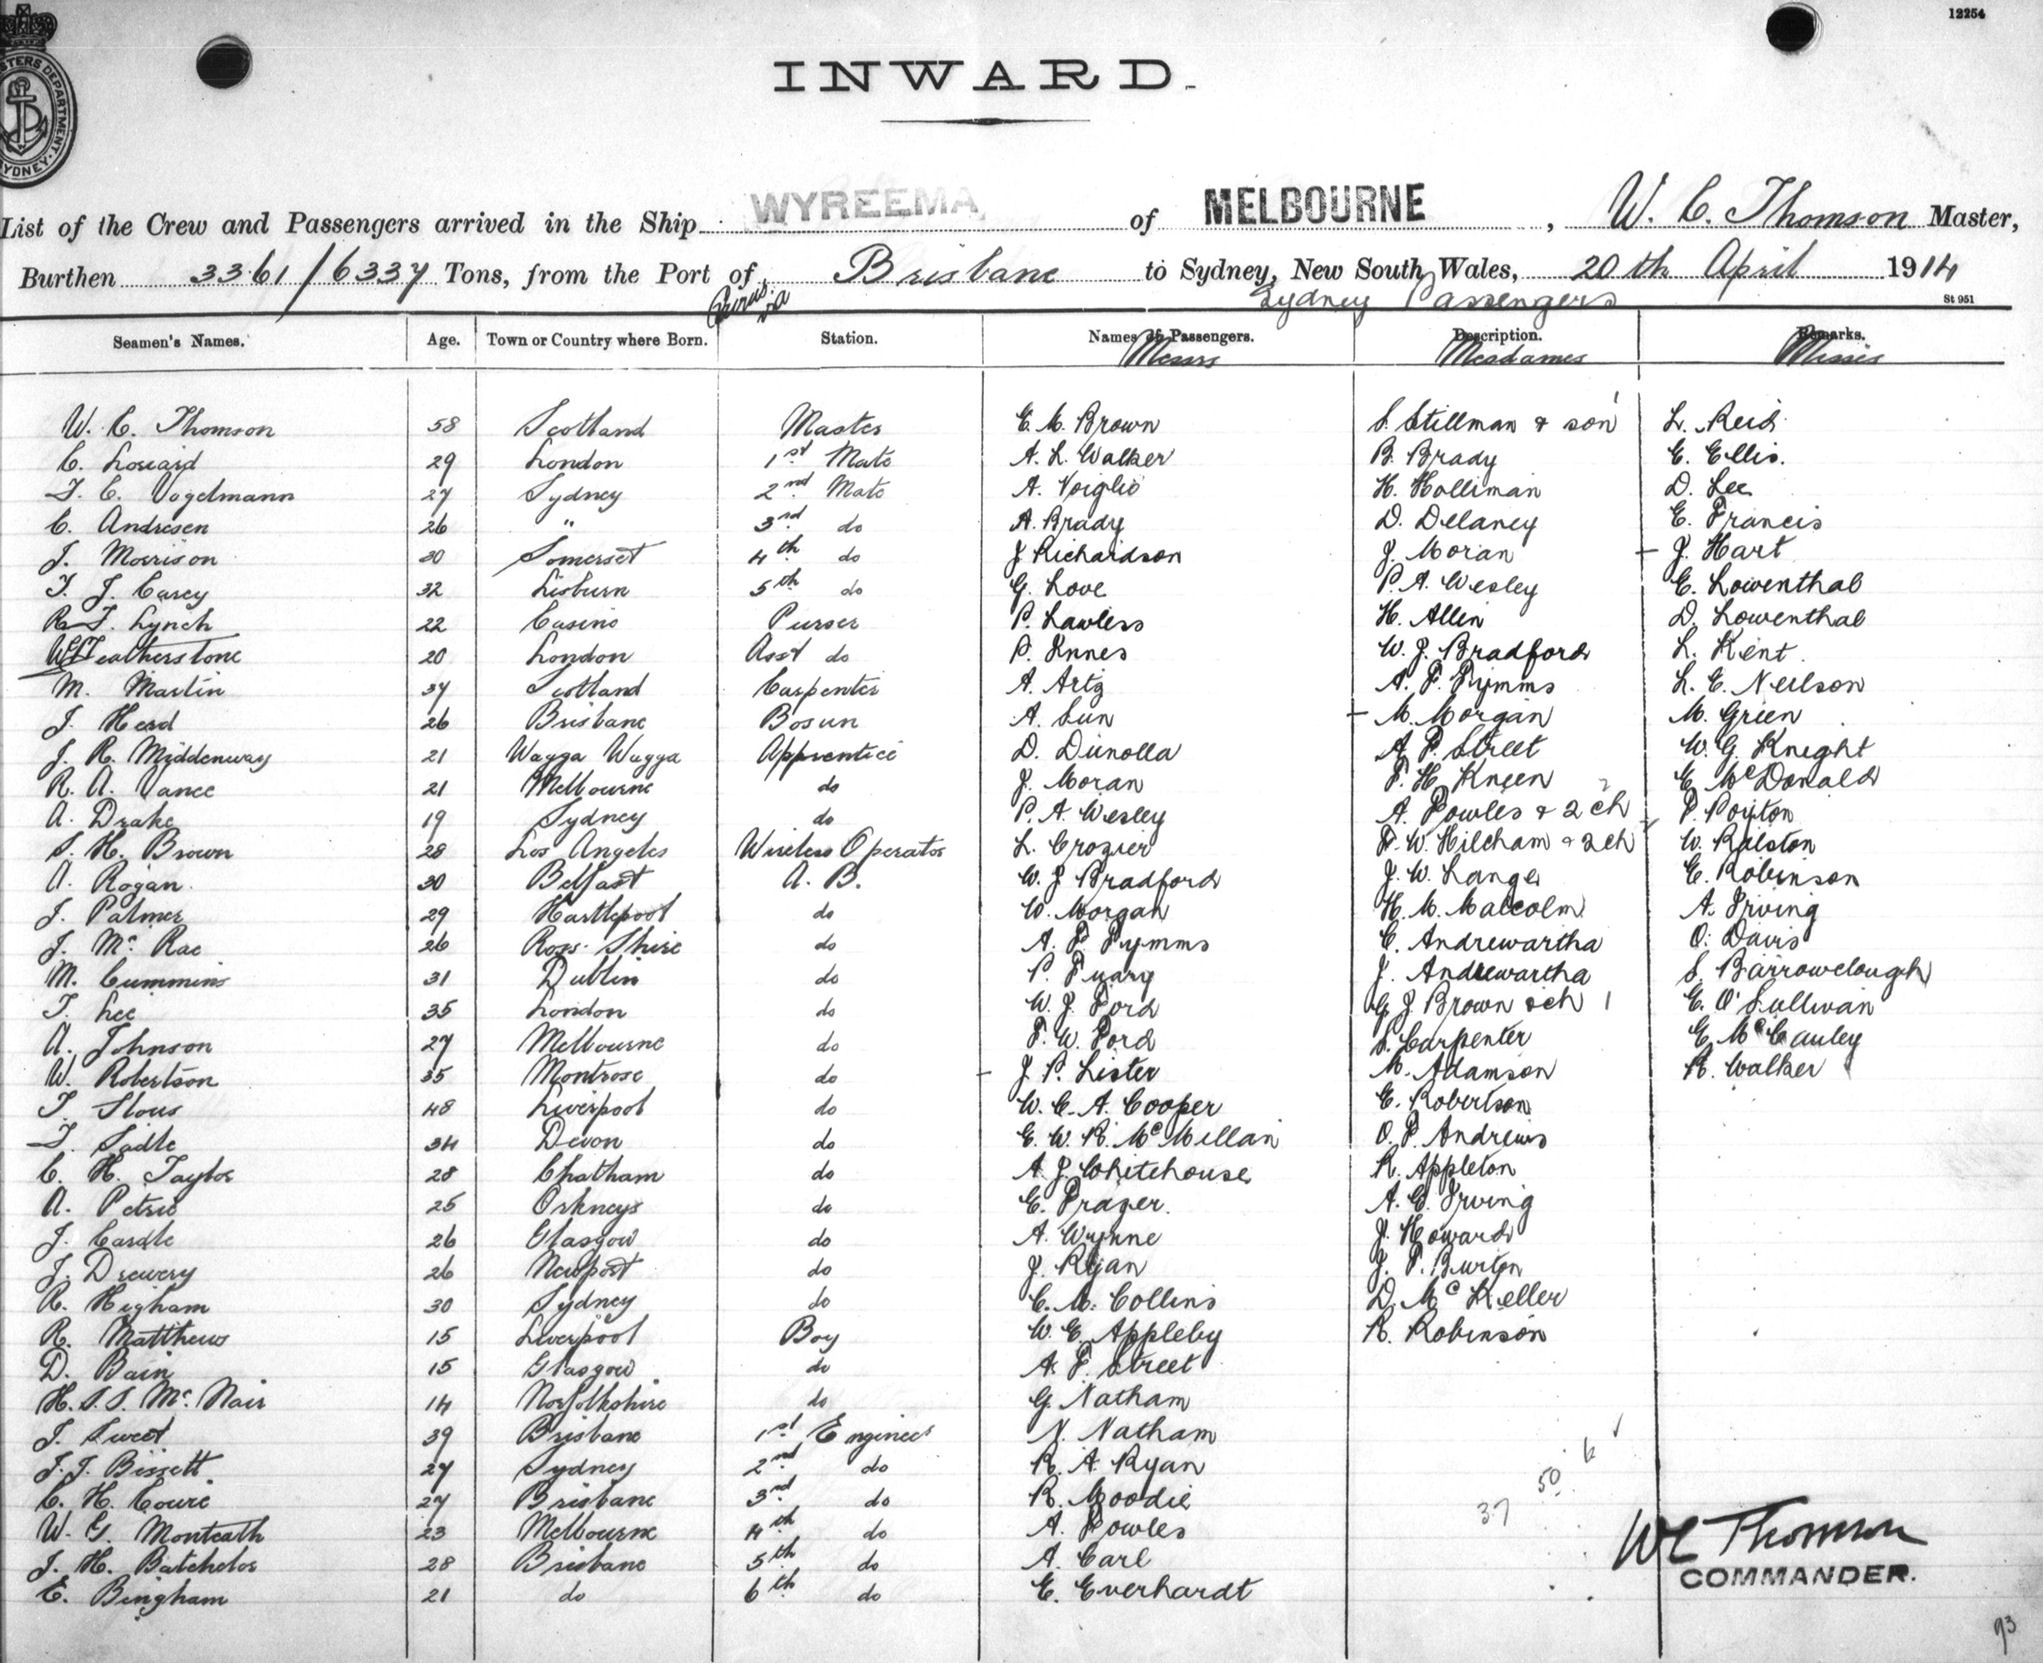 12254
INWARD.
STERS DEPARTMENT. SYDNEY.
List of the Crew and Passengers arrived in the Ship WYREEMA of MELBOURNE, W. C. Thomson Master,
Burthen 3361/6337 Tons, from the Port of Brisbane to Sydney, New South Wales, 20th April 1914
Sydney Passengers St 951
Seamen's Names. Age. Town or Country where Born. Station. Names of Passengers. Description. Remarks.
Messrs Mesdames Misses
W. C. Thomson 58 Scotland Master E. M. Brown S. Stillman & son 1 L. Reid
C. 29 London 1st Mate A. L. Walker B. Brady E. Ellis.
T. C. Vogelmann 27 Sydney 2nd Mate A. Voiglio H. Holliman D. Lee
C. Andresen 26 " 3rd do A. Brady D. Delaney E. Francis
J. Morrison 30 Somerset 4th do J Richardson J. Moran J. Hart
T. J. Carey 32 Lisburn 5th do G. Love P. A. Wesley E. Lowenthal
R. T. Lynch 22 Casino Purser P. Lawless H. Allin D. Lowenthal
Featherstone 20 London Asst do P. Innes W. J. Bradford L. Kent
M. Martin 37 Scotland Carpenter A. Artz A. F. Pymms L. E. Neilson
J. Herd 26 Brisbane Bosun A. Sun M. Morgan M. Green
J. R. Middenway 21 Wagga Wagga Apprentice D. Dunolla A. P. Street W. G. Knight
R. A. Vance 21 Melbourne do J. Moran F. H. Kneen E. McDonald
A. Drake 19 Sydney do P. A. Wesley A. Powles & 2 ch 2 P. Poyton
S. H. Brown 28 Los Angeles Wireless Operator L. Crozier F. W. Hilcham & 2 ch W. Ralston
A. Rogan 30 Belfast A. B. W. J Bradford J. W. Lange E. Robinson
J. Palmer 29 Hartlepool do W. Morgan H. M. Malcolm A. Irving
J. Mc Rae 26 Ross Shire do A. F. Pymms C. Andrewartha O. Davis
M. Cummins 31 Dublin do P. J. Andrewartha S. Barrowclough
T. Lee 35 London do W. J. Ford G J Brown & ch 1 E. O'Sullivan
A. Johnson 27 Melbourne do F. W. Ford S. Carpenter E. McCauley
W. Robertson 35 Montrose do J. P. Lister M. Adamson R. Walker
T. 48 Liverpool do W. C. A. Cooper E. Robertson
T. Sadle 34 Devon do E. W. R. McMillan O. P. Andrews
C. H. Taylor 28 Chatham do A. J. Whitehouse R. Appleton
A. Petrie 25 Orkneys do E. Frazer. A. E. Irving
J. Cardle 26 Glasgow do A. Wynne J. Howard
J. Drewery 26 Newport do J. Ryan J. P. Burton
R. Higham 30 Sydney do C. M. Collins D. McKeller
R. Matthews 15 Liverpool Boy W. E. Appleby R. Robinson
D. Bain 15 Glasgow do A. F. Street
H. S. S. Mc Nair 14 Norfolkshire do G. Natham
J. Sweet 39 Brisbane 1st Engineer N. Natham
J. J. Bissett 27 Sydney 2nd do R. A. Ryan
C. H. Cowie 27 Brisbane 3rd do R. Moodie
W. G. Monteath 23 Melbourne 4th do A. Powles
J. H. Batchelor 28 Brisbane 5th do A. Carl
E. Bingham 21 do 6th do E. Everhardt
37 50 6
W C Thomson
COMMANDER.
93